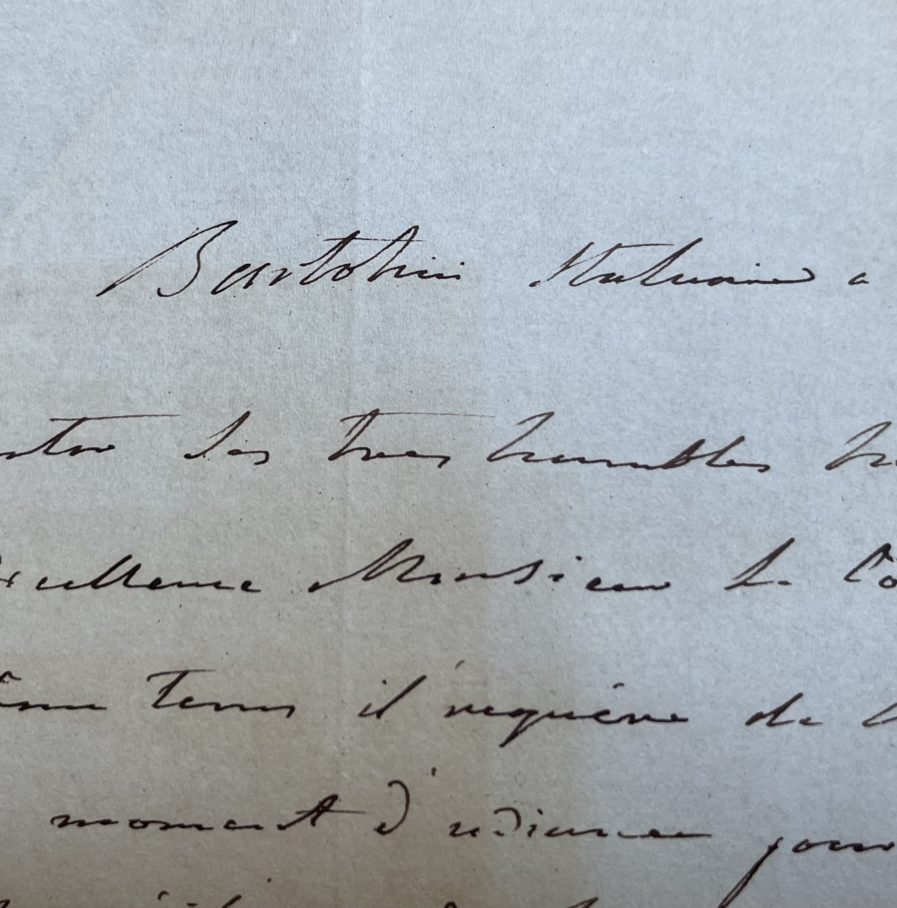 Bartolini Statuaire a
ses tres humbles
Excellence Monsieur le Co
ême tems il requiére de
moment d'udience pour